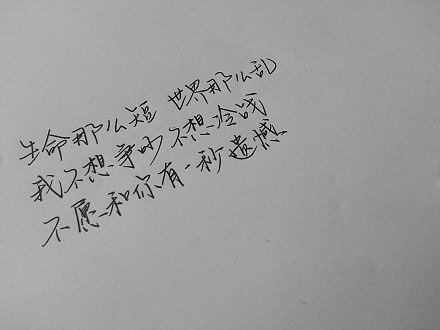 生命那么短 世界那么乱
我不想争吵 不想冷战
不愿和你有一秒遗憾